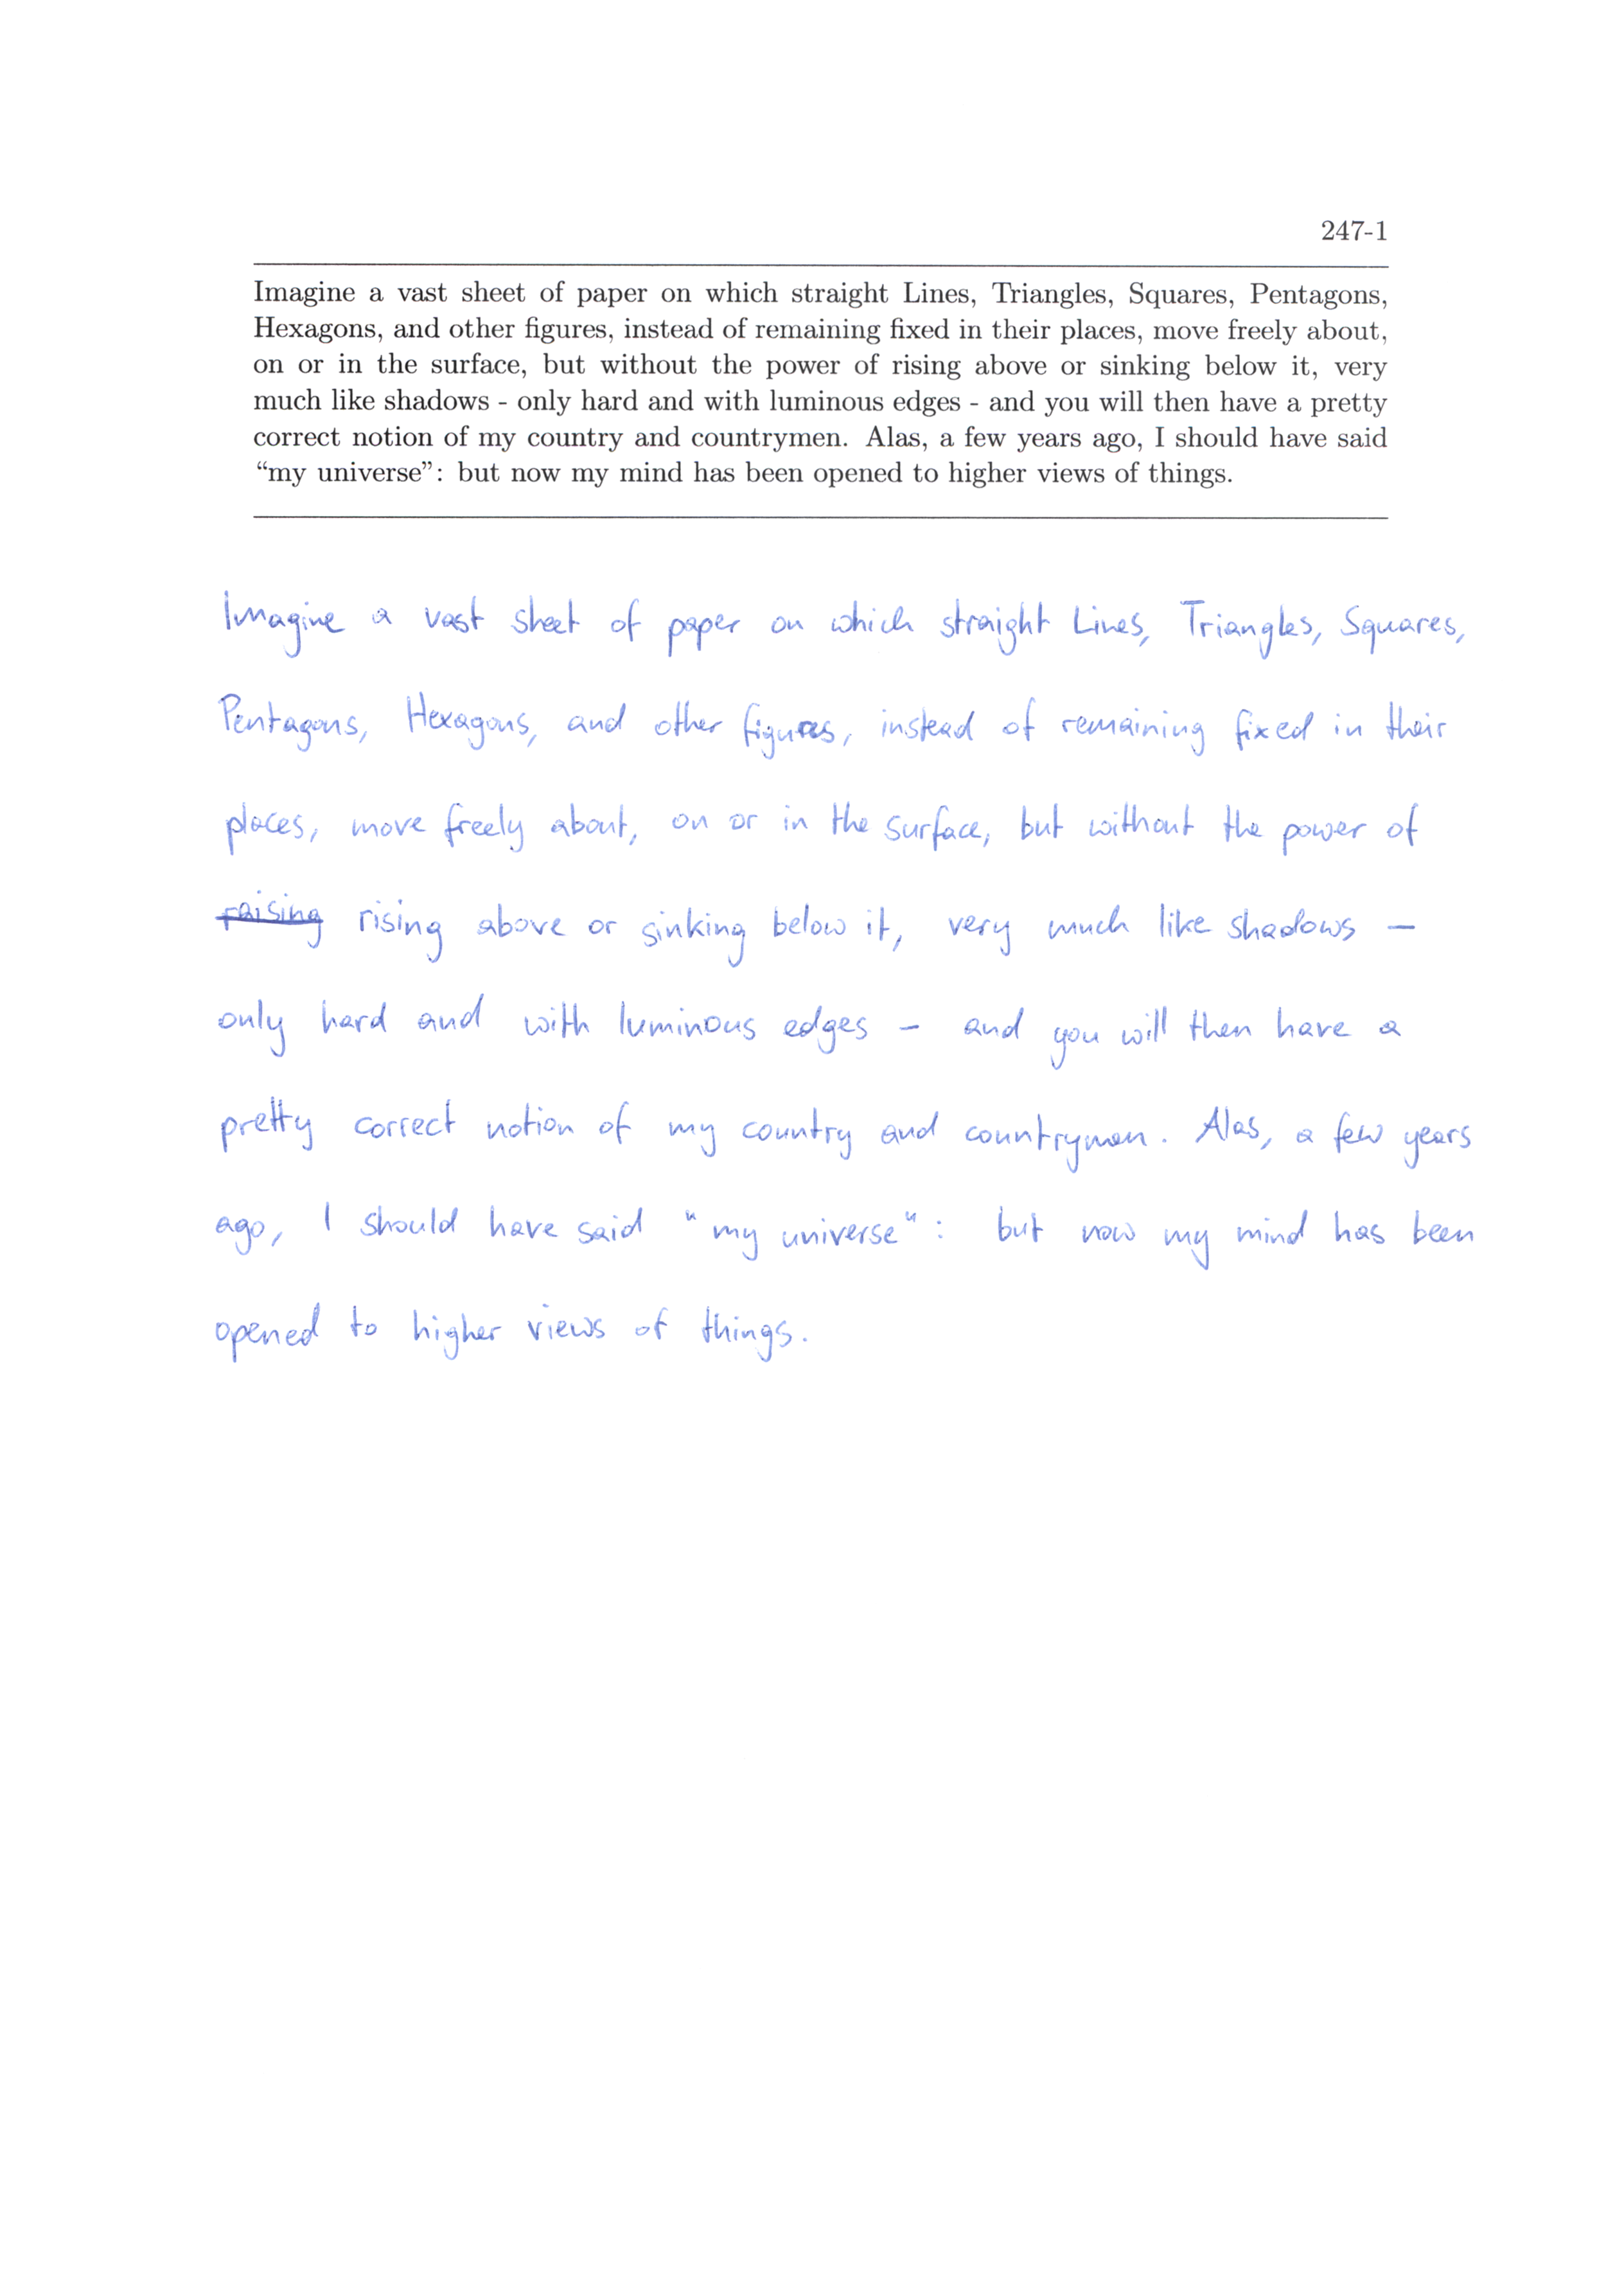 247-1
Imagine a vast sheet of paper on which straight Lines, Triangles, Squares, Pentagons,
Hexagons, and other figures, instead of remaining fixed in their places, move freely about,
on or in the surface, but without the power of rising above or sinking below it, very
much like shadows - only hard and with luminous edges - and you will then have a pretty
correct notion of my country and countrymen. Alas, a few years ago, I should have said
“my universe”: but now my mind has been opened to higher views of things.
Imagine a vast sheet of paper on which straight Lines, Triangles, Squares,
Pentagons, Hexagons, and other figures, instead of remaining fixed in their
places, move freely about, on or in the surface, but without the power of
raising rising above or sinking below it, very much like shadows —
only hard and with luminous edges – and you will then have a
pretty correct notion of my country and countrymen. Alas, a few years
ago, I should have said "my universe": but now my mind has been
opened to higher views of things.